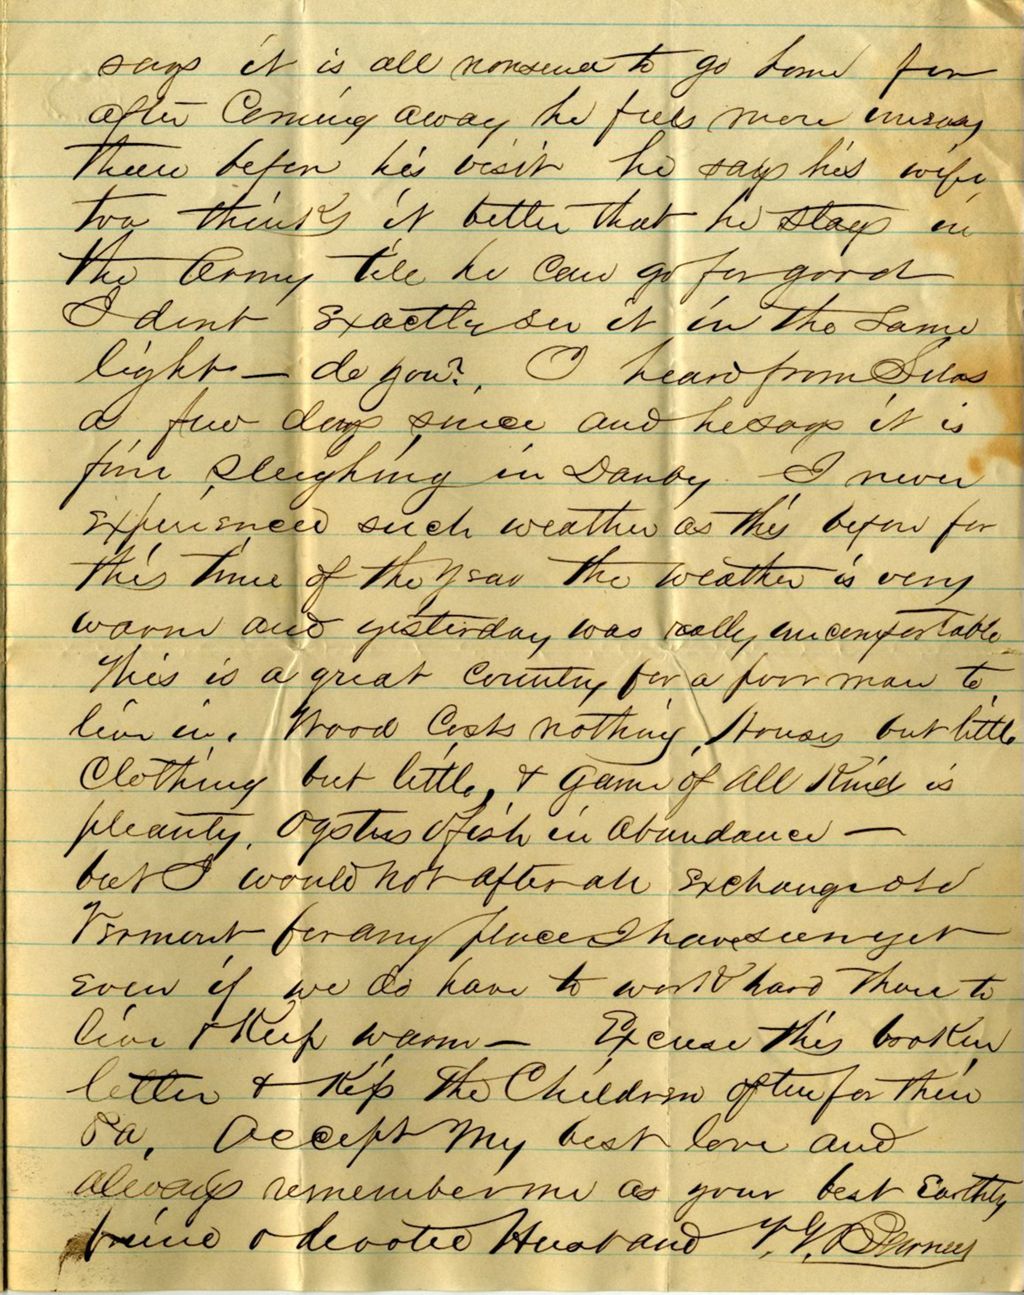 says it is all nonsense to go home for
after Coming away he feels more uneasy
then before his visit he says his wife
too thinks it better that he stays in
the Army till he can go for good
I dont exactly see it in the same
light — do you? I heard from Silas
a few days since and he says it is
fine sleighing in Danby I never
experienced such weather as this before for
this time of the year the weather is very
warm and yesterday was really uncomfortable
This is a great Country for a poor man to
live in. Wood Costs nothing, Houses but little
Clothing but little, & game of all Kind is
pleanty. Oysters & fish in abundance —
but I would not after all exchange old
Vermont for any place I have seen yet
even if we do have to work hard there to
live & Keep warm — Excuse this broken
letter & Kiss the Children often for their
Pa. Accept My best love and
always remember me as your best Earthly
friend & devoted Husband